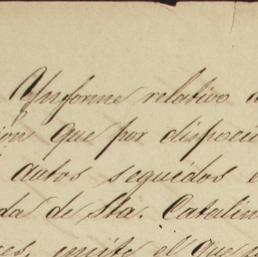 Ynforme relativo a
ion que por disposici
autos seguidos e
da de Sta. Catalin
es, emite el que